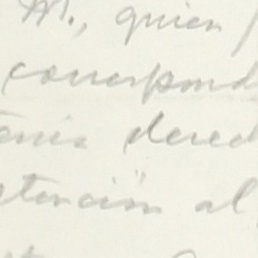 M., quien
correspond
tenía derec
tención" al